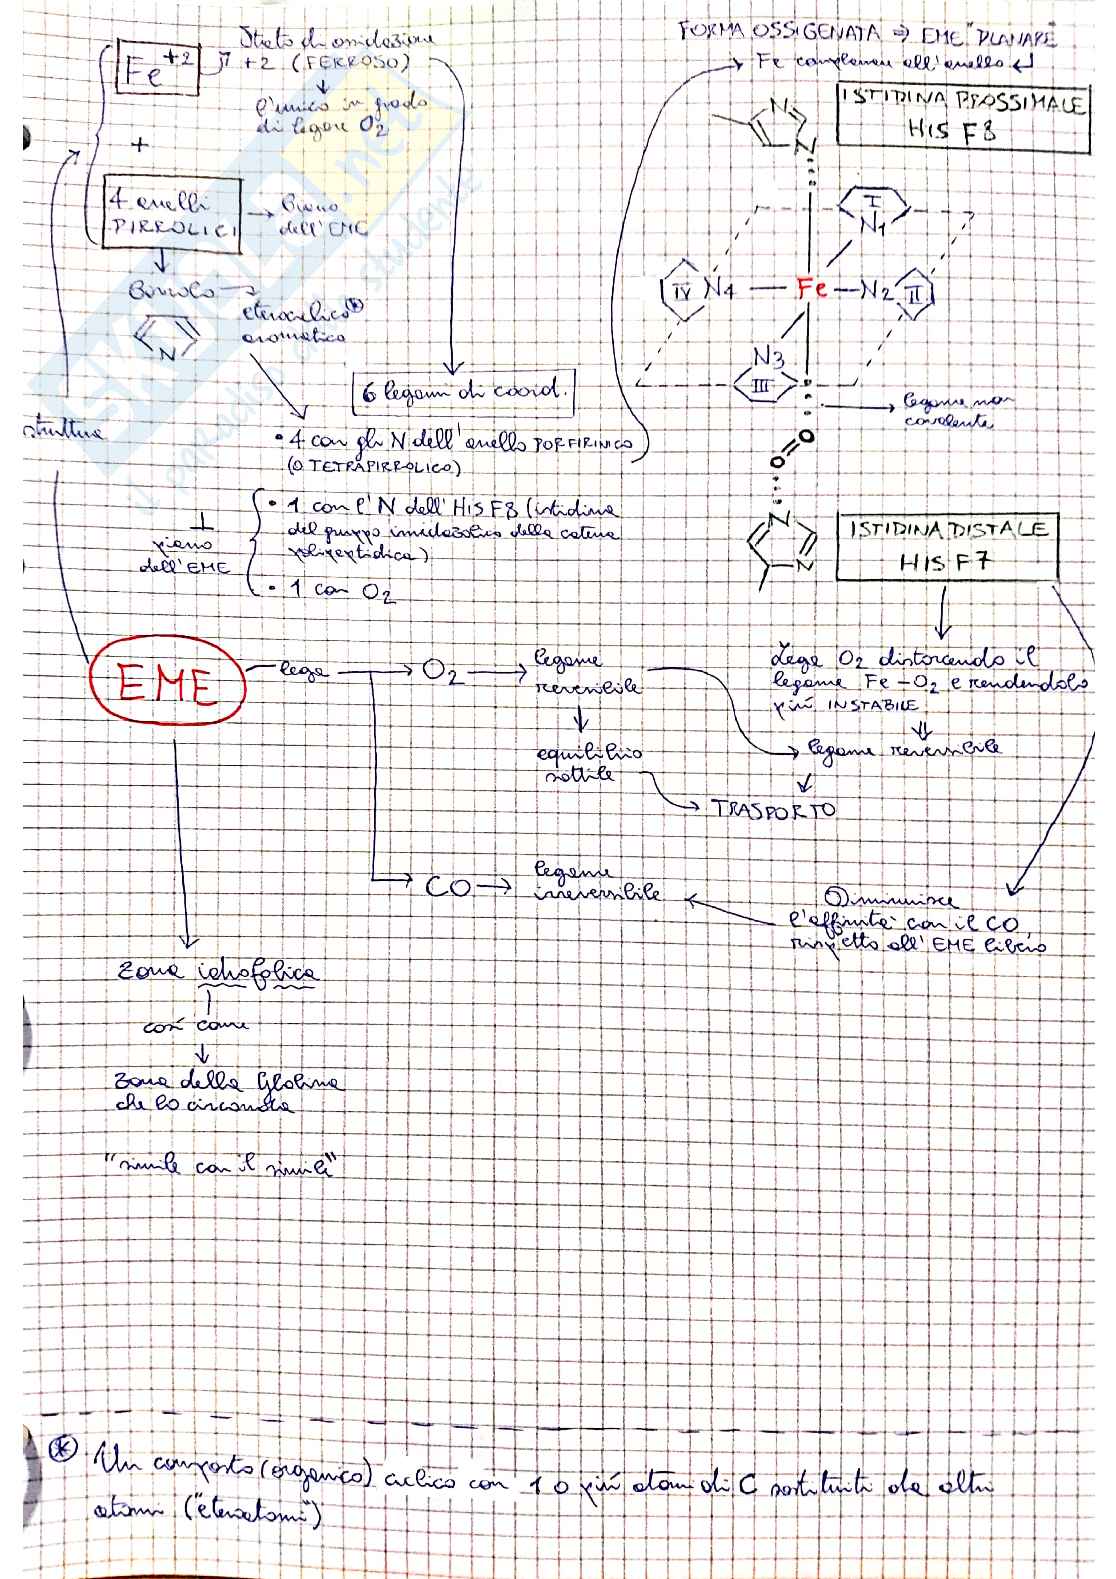 Stato di ossidazione
+2 (FERROSO)
Fe+2
l'unico in grado
di legare O2
+
4 anelli
PIRROLICI
Piano
dell'EME
Pirrolo
eterociclico (*)
aromatico
N
struttura
6 legami di coord.
• 4 con gli N dell'anello PORFIRINICO
(O TETRAPIRROLICO)
• 1 con l'N dell'HIS F8 (istidina
del gruppo imidazolico della catena
polipeptidica)
• 1 con O2
⊥
piano
dell'EME
FORMA OSSIGENATA ⇒ EME "PLANARE"
Fe complanare all'anello
ISTIDINA PROSSIMALE
HIS F8
N
N
I
N1
IV N4 Fe N2 II
N3
III
legame non
covalente
O
O
N
N
ISTIDINA DISTALE
HIS F7
Lega O2 distorcendo il
legame Fe-O2 e rendendolo
più INSTABILE
legame reversibile
TRASPORTO
EME
lega
O2
legame
reversibile
equilibrio
sottile
CO
legame
irreversibile
Diminuisce
l'affinità con il CO,
rispetto all'EME libero
zona idrofobica
così come
zona della Globina
che lo circonda
"simile con il simile"
(*) Un composto (organico) ciclico con 1 o più atomi di C sostituiti da altri
atomi ("eteroatomi")